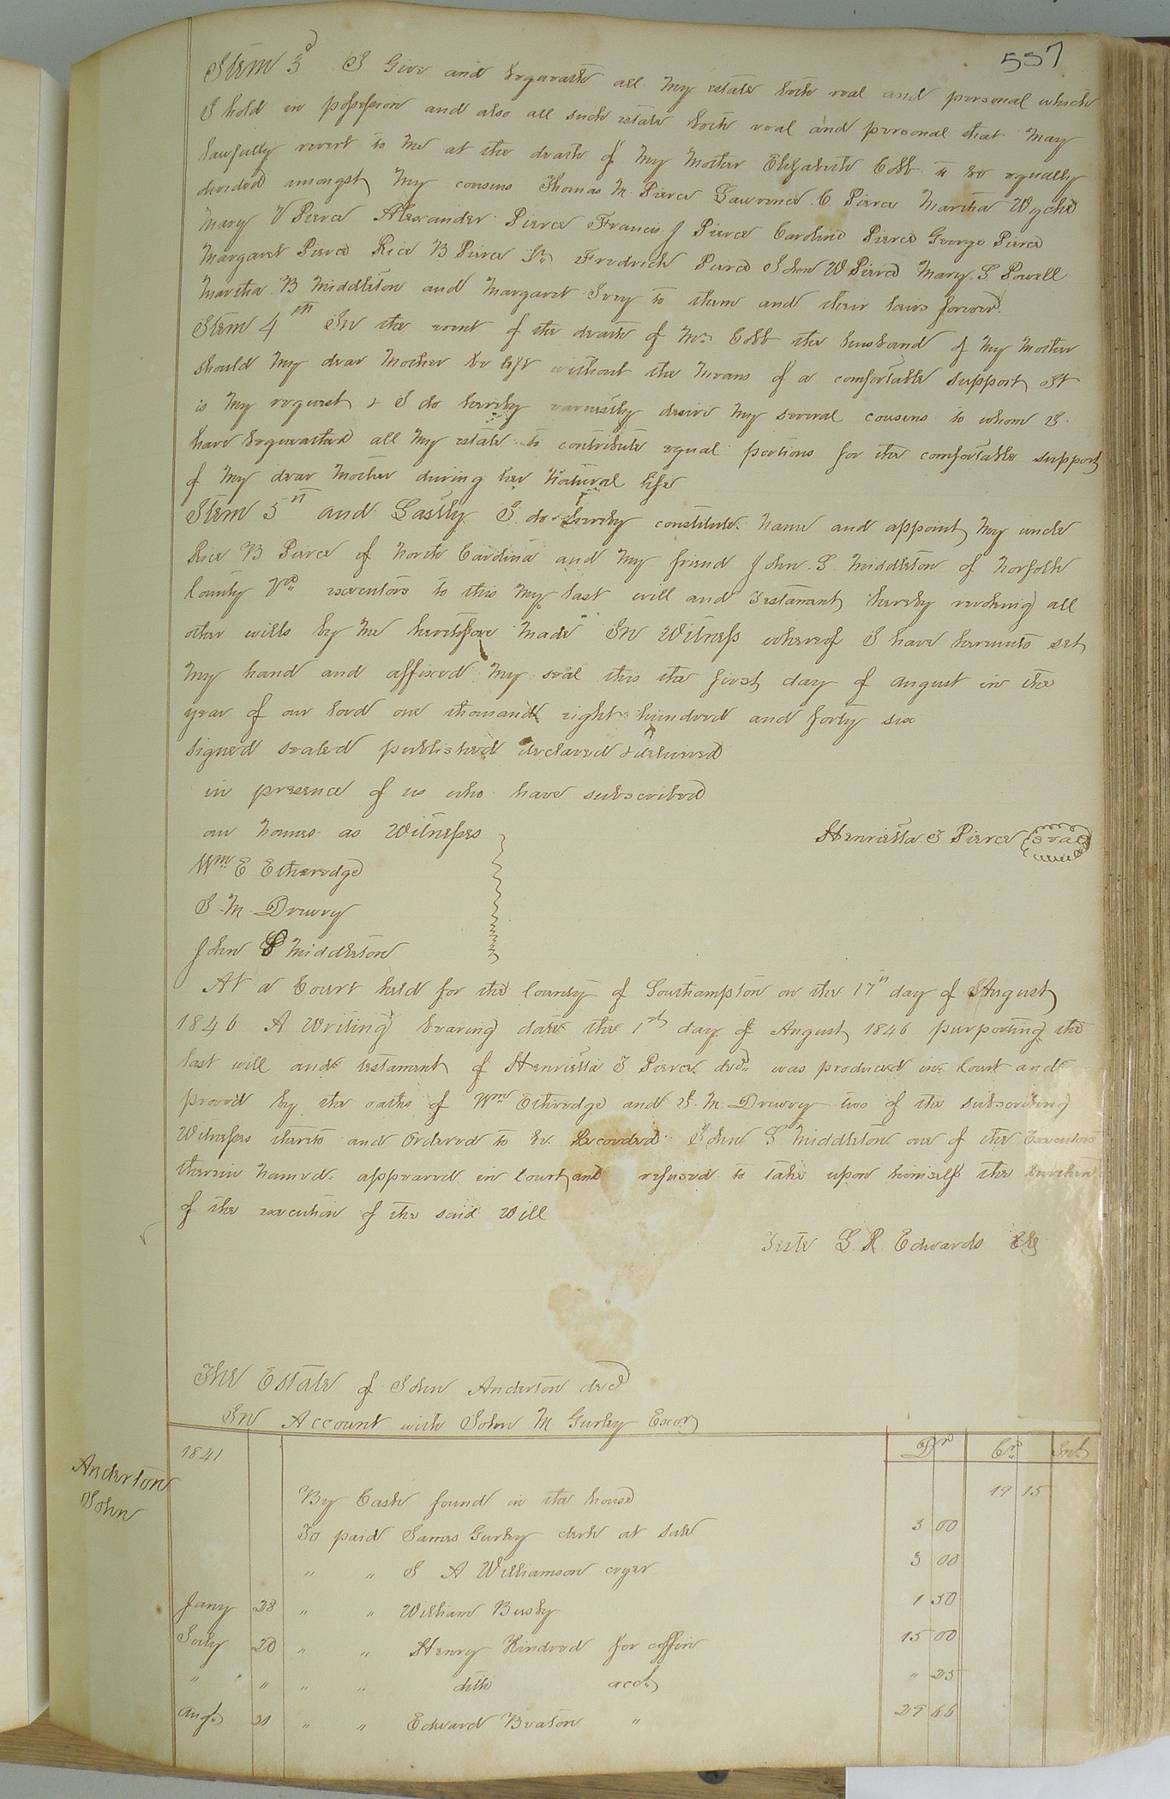 557
Item 3d I Give and bequeath all my estate both real and personal which
I hold in possession and also all such estate both real and personal that may
lawfully revert to me at the death of my mother Elizabeth Cobb to be equally
divided amongst my cousins Thomas N. Pierce Lawrence C. Pierce Martha Wyche
Mary V Pierce Alexander Pierce Francis J Pierce Caroline Pierce George Pierce
Margaret Pierce Rice B Pierce Jr Fredrick Pierce John W Pierce Mary S Powell
Martha B Middleton and Margaret Ivey to them and their heirs forever.
Item 4th In the event of the death of Mr Cobb the husband of my mother
should my dear mother be left without the means of a comfortable support It
is my request & I do hereby earnestly desire my several cousins to whom I
have bequeathed all my estate to contribute equal portions for the comfortable support
of my dear mother during her natural life
Item 5th and Lastly I do hereby constitute name and appoint my uncle
Rice B Pierce of North Carolina and my friend John S Middleton of Norfolk
County Va executors to this my last will and Testament hereby revoking all
other wills by me heretofore made In Witness whereof I have hereunto set
my hand and affixed my seal this the first day of august in the
year of our lord one thousand eight hundred and forty six
signed sealed published declared & delivered
in presence of us who have subscribed
our names as Witnesses
Henrietta I Pierce Seal
Wm E Etheredge
S. M Drewry
John S Middleton
At a Court held for the County of Southampton on the 17th day of August
1846 A Writing bearing date the 1st day of August 1846 purporting the
last will and testament of Henrietta I Pierce decd was produced in Court and
proved by the oaths of Wm Etheredge and S. M. Drewry two of the subscribing
Witnesses thereto and Ordered to be Recorded John S Middleton one of the Executors
therein named appeared in Court and refused to take upon himself the burthen
of the execution of the said Will
Teste L R Edwards Clk
The Estate of John Anderton decd
In Account with John M Gurley Exor
Anderton
John
1841 Dr Cr Int
By Cash found in the house 19 15
To paid James Gurley clerk at sale 3 00
" " S A Williamson cryer 3 00
Jany 28 " " William Busby 1 50
July 20 " " Henry Kindred for coffin 15 00
" " " " ditto acct " 25
Augt 31 " " Edward Beaton " 29 66